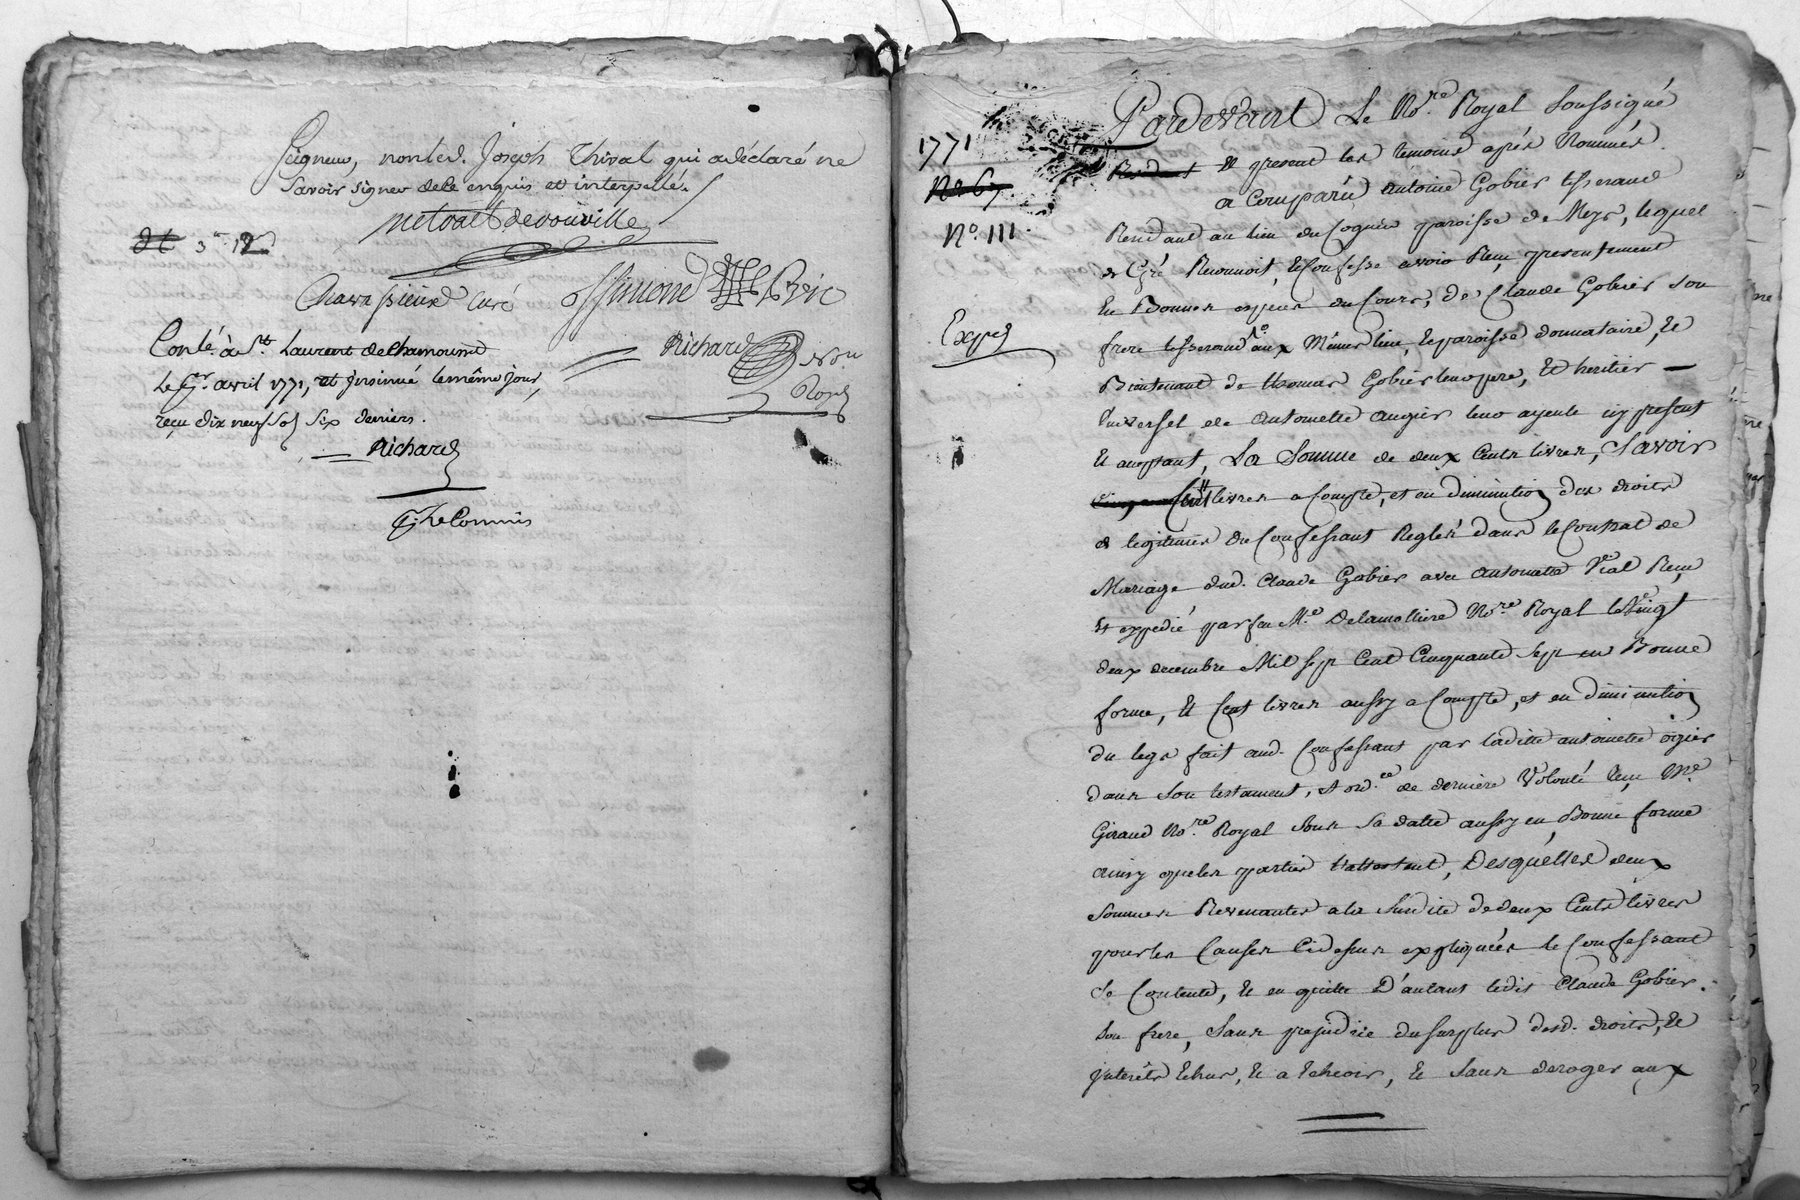 Seigneur, non led. Joseph Thival qui a déclaré ne
savoir signer de ce enquis et interpellé.
3 12
Charassieux Curé
ffimond
Richard
Nore
Royal
Conlé à St. Laurent de Chamousset
Le avril 1771, et insinué le même jour,
reçu dix neuf sol six deniers.
Richard
Commis
1771
No 67
No. 111.
Expéd
Pardevant Le Nore. Royal Soussigné
Residant et present les temoins aprés Nommés.
a Comparu antoine Gobier tisserand
Residant au lieu du Coguin paroisse de Meys, lequel
de Gré Reconnoit, et Confesse avoir Reçu presentement
En Bonnes especes du Cours, de Claude Gobier son
frere tisserand aux Mêmes lieu, et paroisse donnataire, et
Bientenant de thomas Gobier leur pere, et heritier
universel de antoinette augier leur ayeule icy present
et aceptant, La Somme de deux Cents livres, Savoir
Cent livres a Compte, et en diminution des droits
de legitimes du Confessant Reglés dans le Contrat de
Mariage dud. Claude Gobier avec antoinette Vial Reçu
et expedié par feu Me. Delamolliere Nore. Royal le Vingt
deux decembre Mil sept Cent Cinquante sept en Bonne
forme, et Cent livres aussy a Compte, et en diminution
du legs fait aud. Confessant par laditte antoinette ogier
dans son testament, et ordce. de derniere Volonté Reçu Me.
Giraud Nore. Royal sous sa datte aussy en Bonne forme
ainsy que les parties l'attestent, Desquelles deux
sommes Revenantes a la susdite de deux Cents livres
pour les Causes Cidesus expliquées le Confessant
se Contente, et en quitte D'autant ledit Claude Gobier.
son frere, sans prejudice du surplus desd. droits, et
interêts echus, et a echeoir, et sans deroger aux